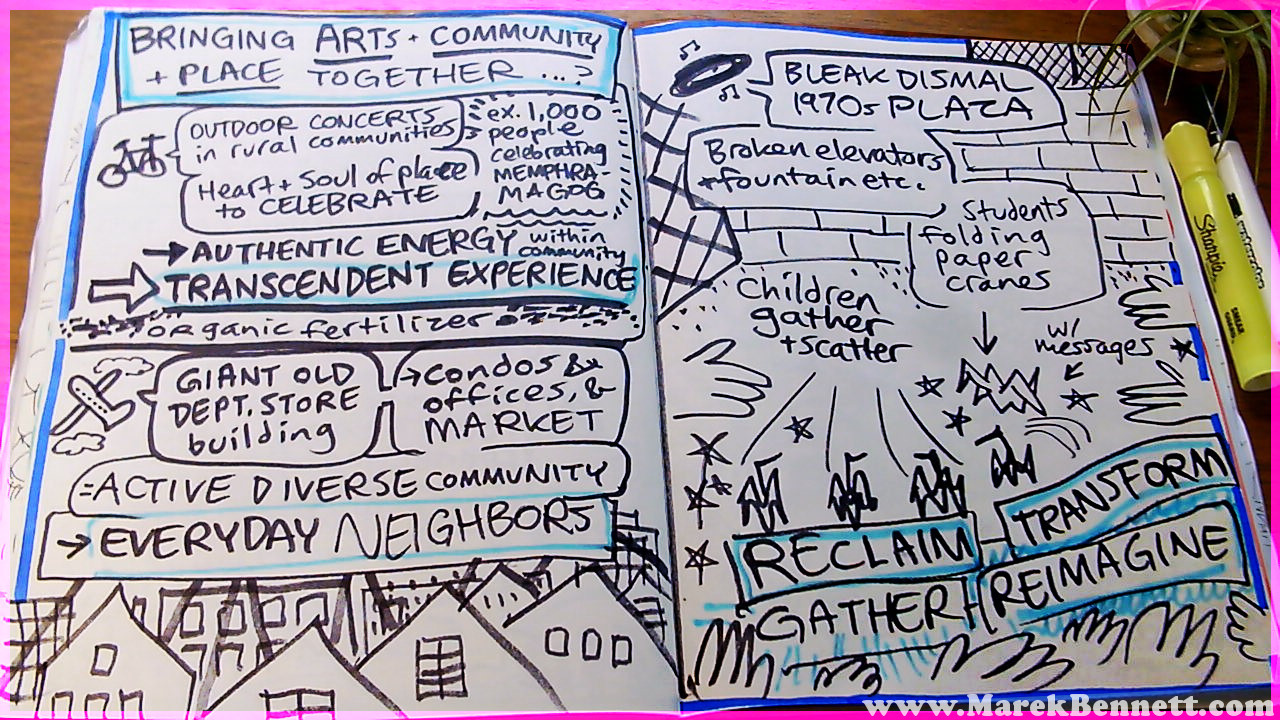 BRINGING ARTS + COMMUNITY
+ PLACE TOGETHER ...?
OUTDOOR CONCERTS
in rural communities
Heart + Soul of place
to CELEBRATE
ex. 1,000
people
celebrating
MEMPHRA-
MAGOG
→ AUTHENTIC ENERGY within
community
TRANSCENDENT EXPERIENCE
organic fertilizer
GIANT OLD
DEPT. STORE
building
→ condos &
offices, &
MARKET
= ACTIVE DIVERSE COMMUNITY
→ EVERYDAY NEIGHBORS
BLEAK DISMAL
1970s PLAZA
Broken elevators
+ fountain etc.
Students
folding
paper
cranes
Children
gather
+ scatter
w/
messages
RECLAIM
TRANSFORM
GATHER +
REIMAGINE
Sharpie
www.MarekBennett.com